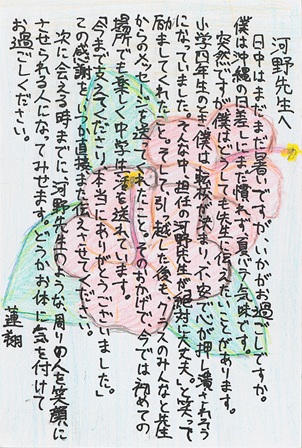 河野先生へ
日中はまだまだ暑いですが、いかがお過ごしですか。
僕は沖縄の日差しにまだ慣れず、夏バテ気味です。
突然ですが、僕はどうしても先生に伝えたいことがあります。
小学四年生のとき、僕は転校が決まり、不安で心が押し潰されそう
になっていました。そんなとき、担任の河野先生が「絶対に大丈夫。」と笑って
励ましてくれたこと。そして、引っ越した後も、クラスのみんなと先生
からのメッセージを送ってくれたこと。そのおかげで、今では初めての
場所でも楽しく中学生生活を送れています。
「今まで支えてくださり、本当にありがとうございました。」
この感謝をいつか直接また伝えさせてください。
次に会える時までに、河野先生のような周りの人を笑顔に
させられる人になってみせます。どうかお体に気を付けて
お過ごしください。
蓮翔